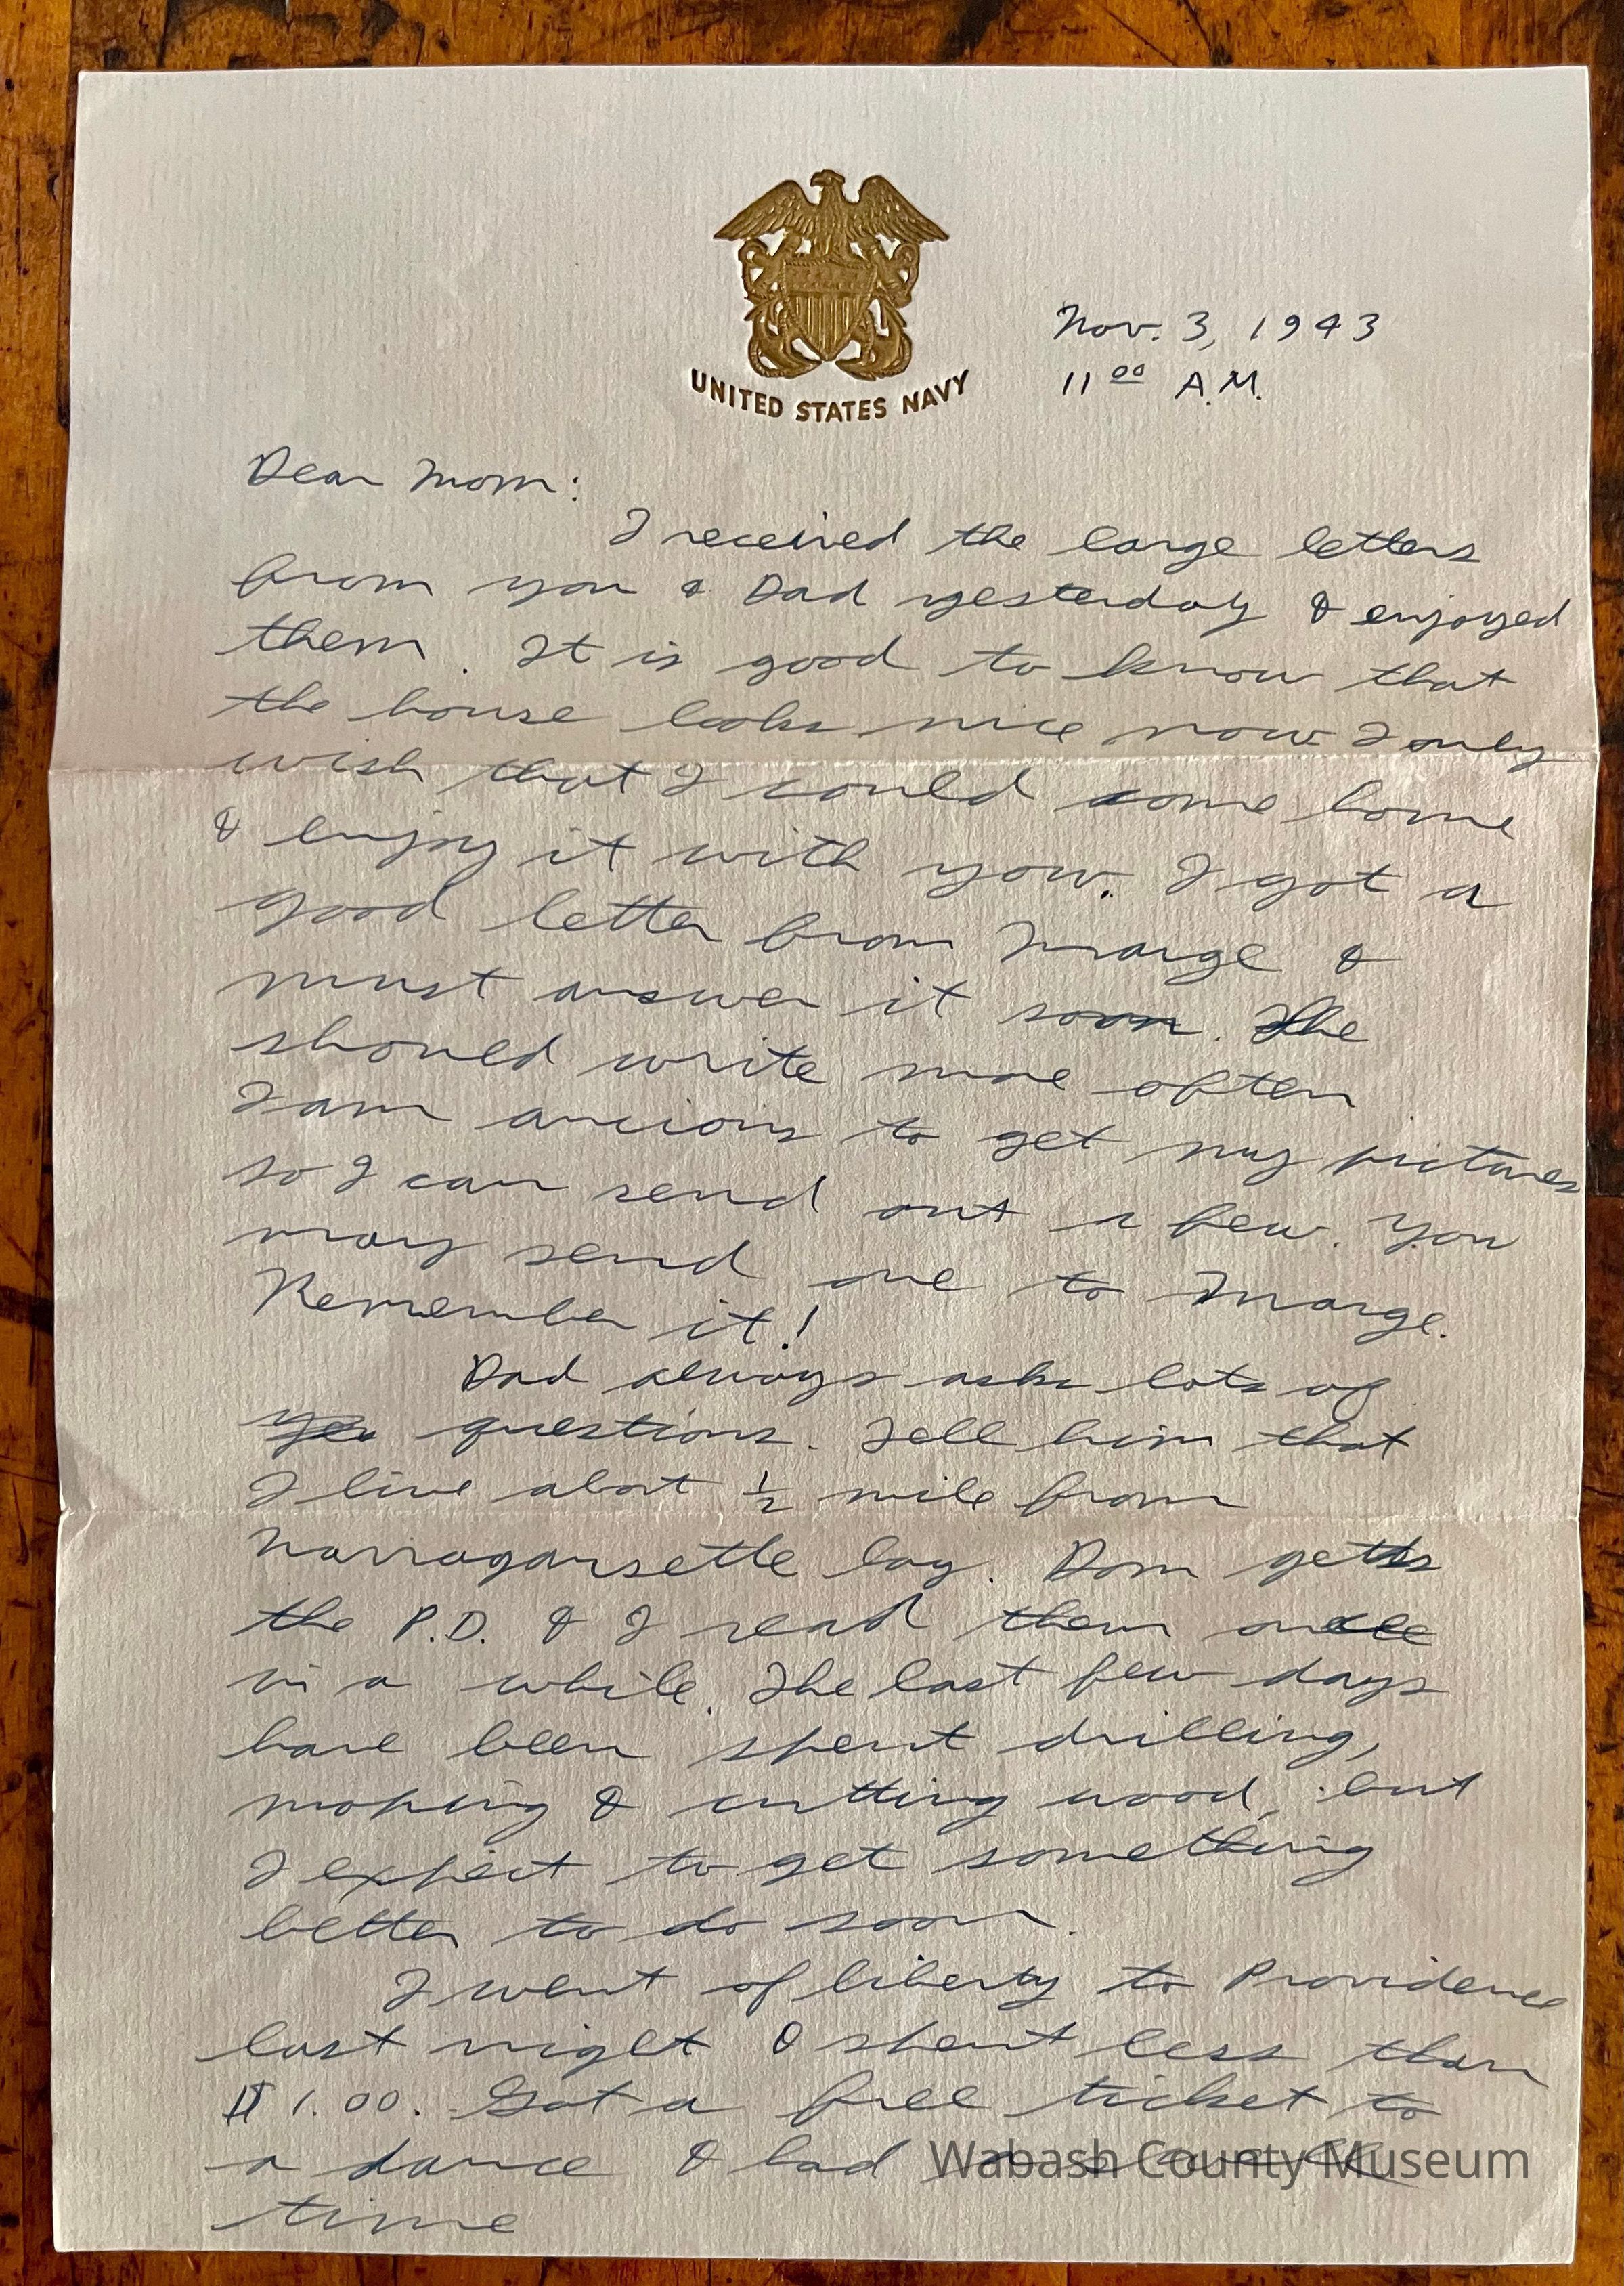 UNITED STATES NAVY
Nov. 3, 1943
11 00 A.M.
Dear Mom:
I received the large letters
from you & Dad yesterday & enjoyed
them. It is good to know that
the house looks nice now I only
wish that I could come home
& enjoy it with you. I got a
good letter from Marge &
must answer it soon. She
should write more often
I am anxious to get my pictures
so I can send out a few. You
may send one to Marge.
Remember it!
Dad always asks lots of
questions. Tell him that
I live about 1/2 mile from
Narragansette bay. Dom gets
the P.D. & I read them once
in a while. The last few days
have been spent drilling,
moping & cutting wood, but
I expect to get something
better to do soon.
I went of liberty to Providence
last night & spent less than
$1.00. Got a free ticket to
a dance & had a
time
Wabash County Museum